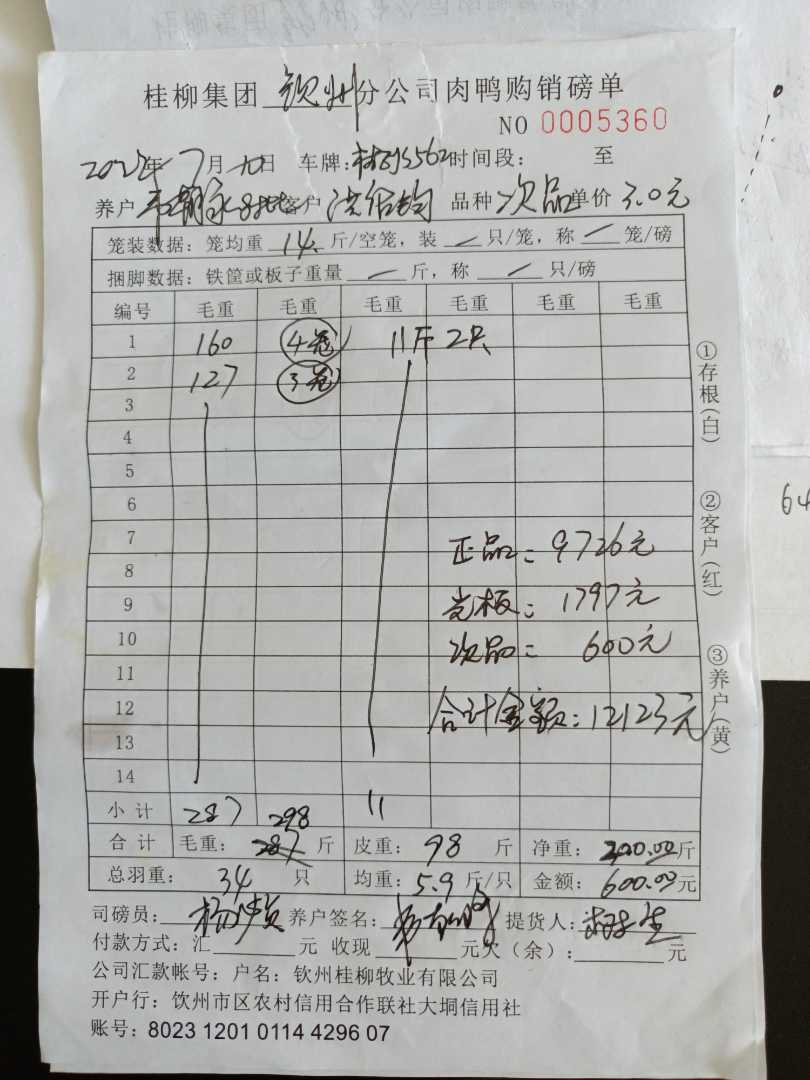 桂柳集团 钦州 分公司肉鸭购销磅单
NO 0005360
年 7月 日 车牌: 时间段: 至
养户 客户 品种 次品 单价 3.0元
笼装数据: 笼均重 14 斤/空笼, 装 — 只/笼, 称 — 笼/磅
捆脚数据: 铁筐或板子重量 — 斤, 称 — 只/磅
编号 毛重 毛重 毛重 毛重 毛重 毛重
1 160 4笼 11斤 2只
2 127 3笼
3
4
5
6
7 正品: 9726元
8
9 壳板: 1797元
10 次品: 600元
11
12 合计金额: 12123元
13
14
小计 287 298 11
合计 毛重: 287 斤 皮重: 98 斤 净重: 200.00斤
总羽重: 34 只 均重: 5.9 斤/只 金额: 600.00元
司磅员: 养户签名: 提货人:
付款方式: 汇 元 收现 元欠(余): 元
公司汇款帐号: 户名: 钦州桂柳牧业有限公司
开户行: 钦州市区农村信用合作联社大垌信用社
账号: 8023 1201 0114 4296 07
①存根(白)
②客户(红)
③养户(黄)
64